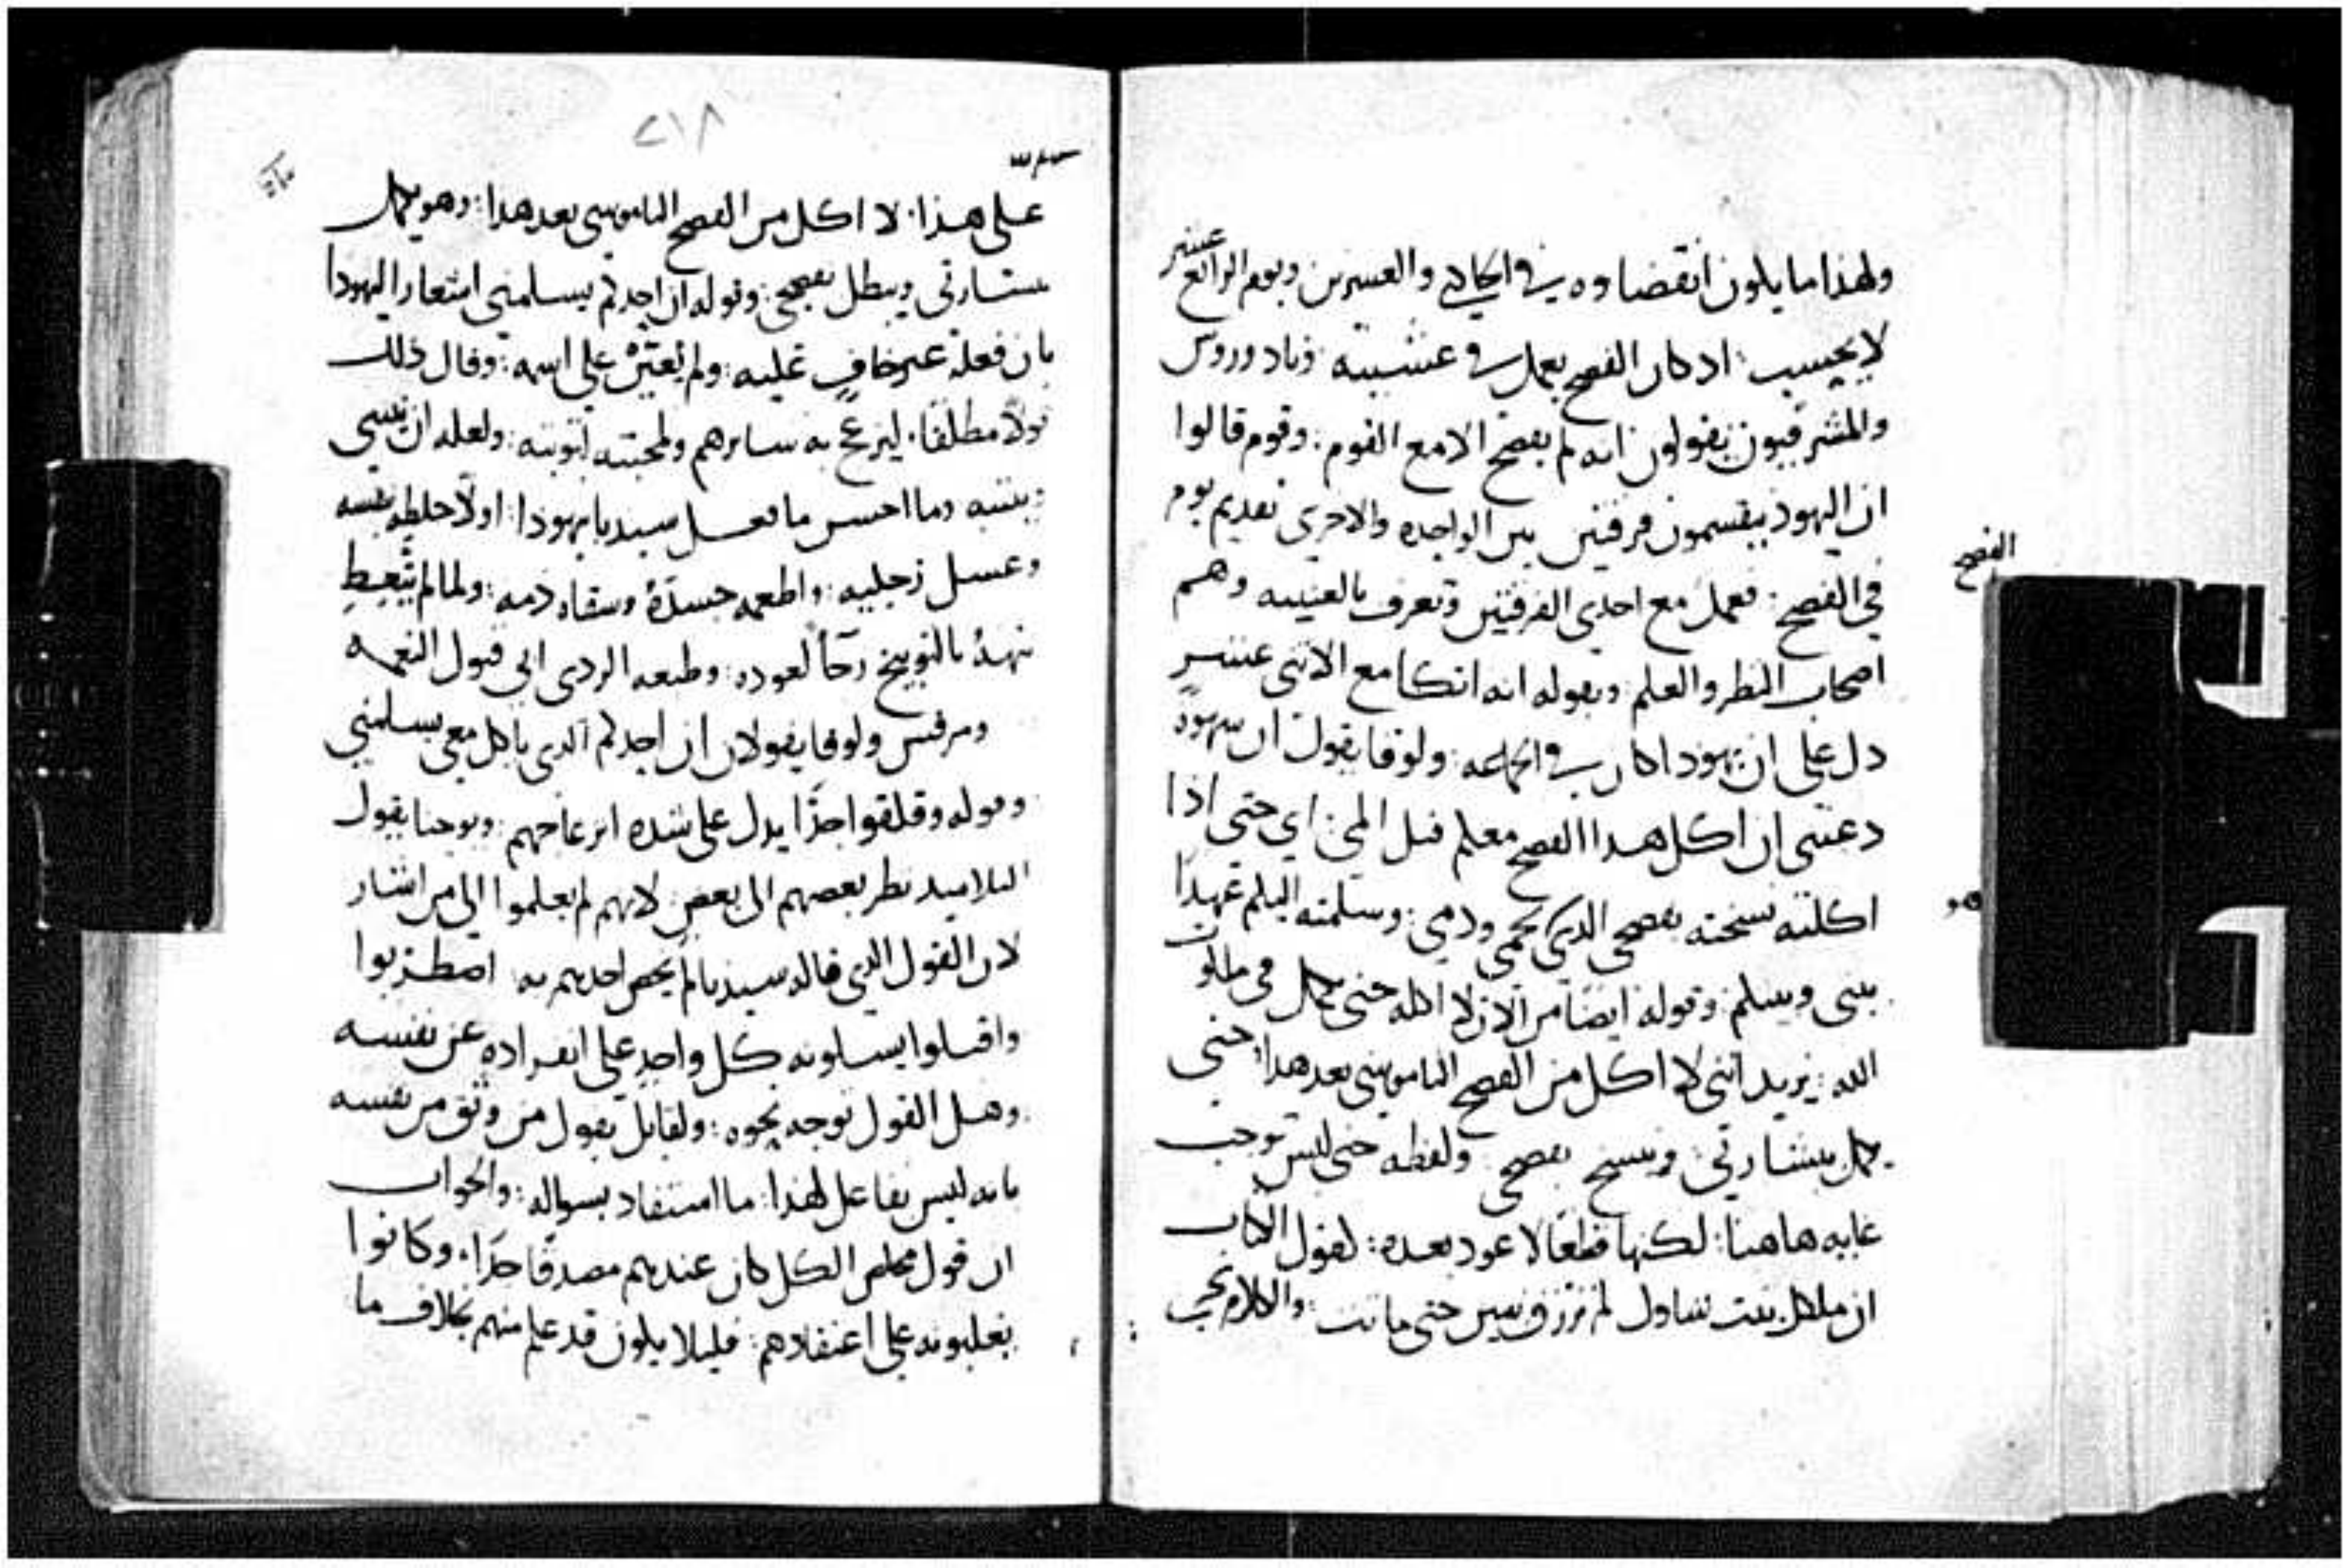 ولهذا ما يكون انقضاوه في الحادي والعشرين ويوم الرابع عشر
لا يحسب: اذ كان الفصح يعمل في عشيته وثاودوروس
والمشرقيون يقولون انه لم يفصح الا مع القوم: وقوم قالوا
ان اليهود ينقسمون فرقتين بين الواحده والاخرى تقديم يوم
في الفصح: فعمل مع احدى الفرقتين وتعرف بالعنينه وهم
الفصح
اصحاب النظر والعلم: وبقوله انه اتكا مع الاثنى عشر
دل على ان يهودا كان في الجماعه: ولوقا يقول ان شهوة
دعتني ان اكل هذا الفصح معكم قبل المي: اي حتى اذا
اكلته نسخته بفصحي الذي لحمي ودمي: وسلمته اليكم عهدا
هو
بيني وبينكم: وقوله ايضا من الان لا اكله حتى يكمل في ملكوت
الله: يريد انني لا اكل من الفصح الناموسي بعد هذا: حتى
يكمل بشارتي: وينسخ بفصحي ولفظه حتى ليس توجب
غايه هاهنا: لكنها قطعا لا عود بعده: لقول الكتاب
ان ملكل بنت شاول لم ترزق بنين حتى ماتت: والكلام يجي
٢١٨
على هذا: لا اكل من الفصح الناموسي بعد هذا: وهو يكمل
بشارتي ويبطل بفصحي: وقوله ان احدكم يسلمني اشعار اليهودا
بان فعله غير خاف عليه: ولم يعثر على اسمه: وقال ذلك
قولا مطلقا: ليزعج به سايرهم ولمحبته لتوبته: ولعله ان
وينتبه وما احسن ما فعل سيدنا بيهودا: اولا خلطه بنفسه
وغسل رجليه: واطعمه جسده وسقاه دمه: ولما لم يتعظ
نبهه بالتوبيخ رجا لعوده: وطبعه الردى ابى قبول النعمه
ومرقس ولوقا يقولان ان احدكم الذي ياكل معي يسلمني
وقوله وقلقوا جدا يدل على شده انزعاجهم: ويوحنا يقول
التلاميذ نظر بعضهم الى بعض: لانهم لم يعلموا الى من اشار
لان القول الذي قاله سيدنا لم يخص احدهم به: اضطربوا
واقبلوا يسلونه كل واحد على انفراده عن نفسه
وهل القول توجه نحوه: ولقايل يقول من وثق من نفسه
بانه ليس بفاعل لهذا: ما استفاد بسواله: والجواب
ان قول مخلص الكل كان عندهم مصدقا جدا: وكانوا
يغلبونه على اعتقادهم: فليلا يكون قد علم منهم بخلاف ما